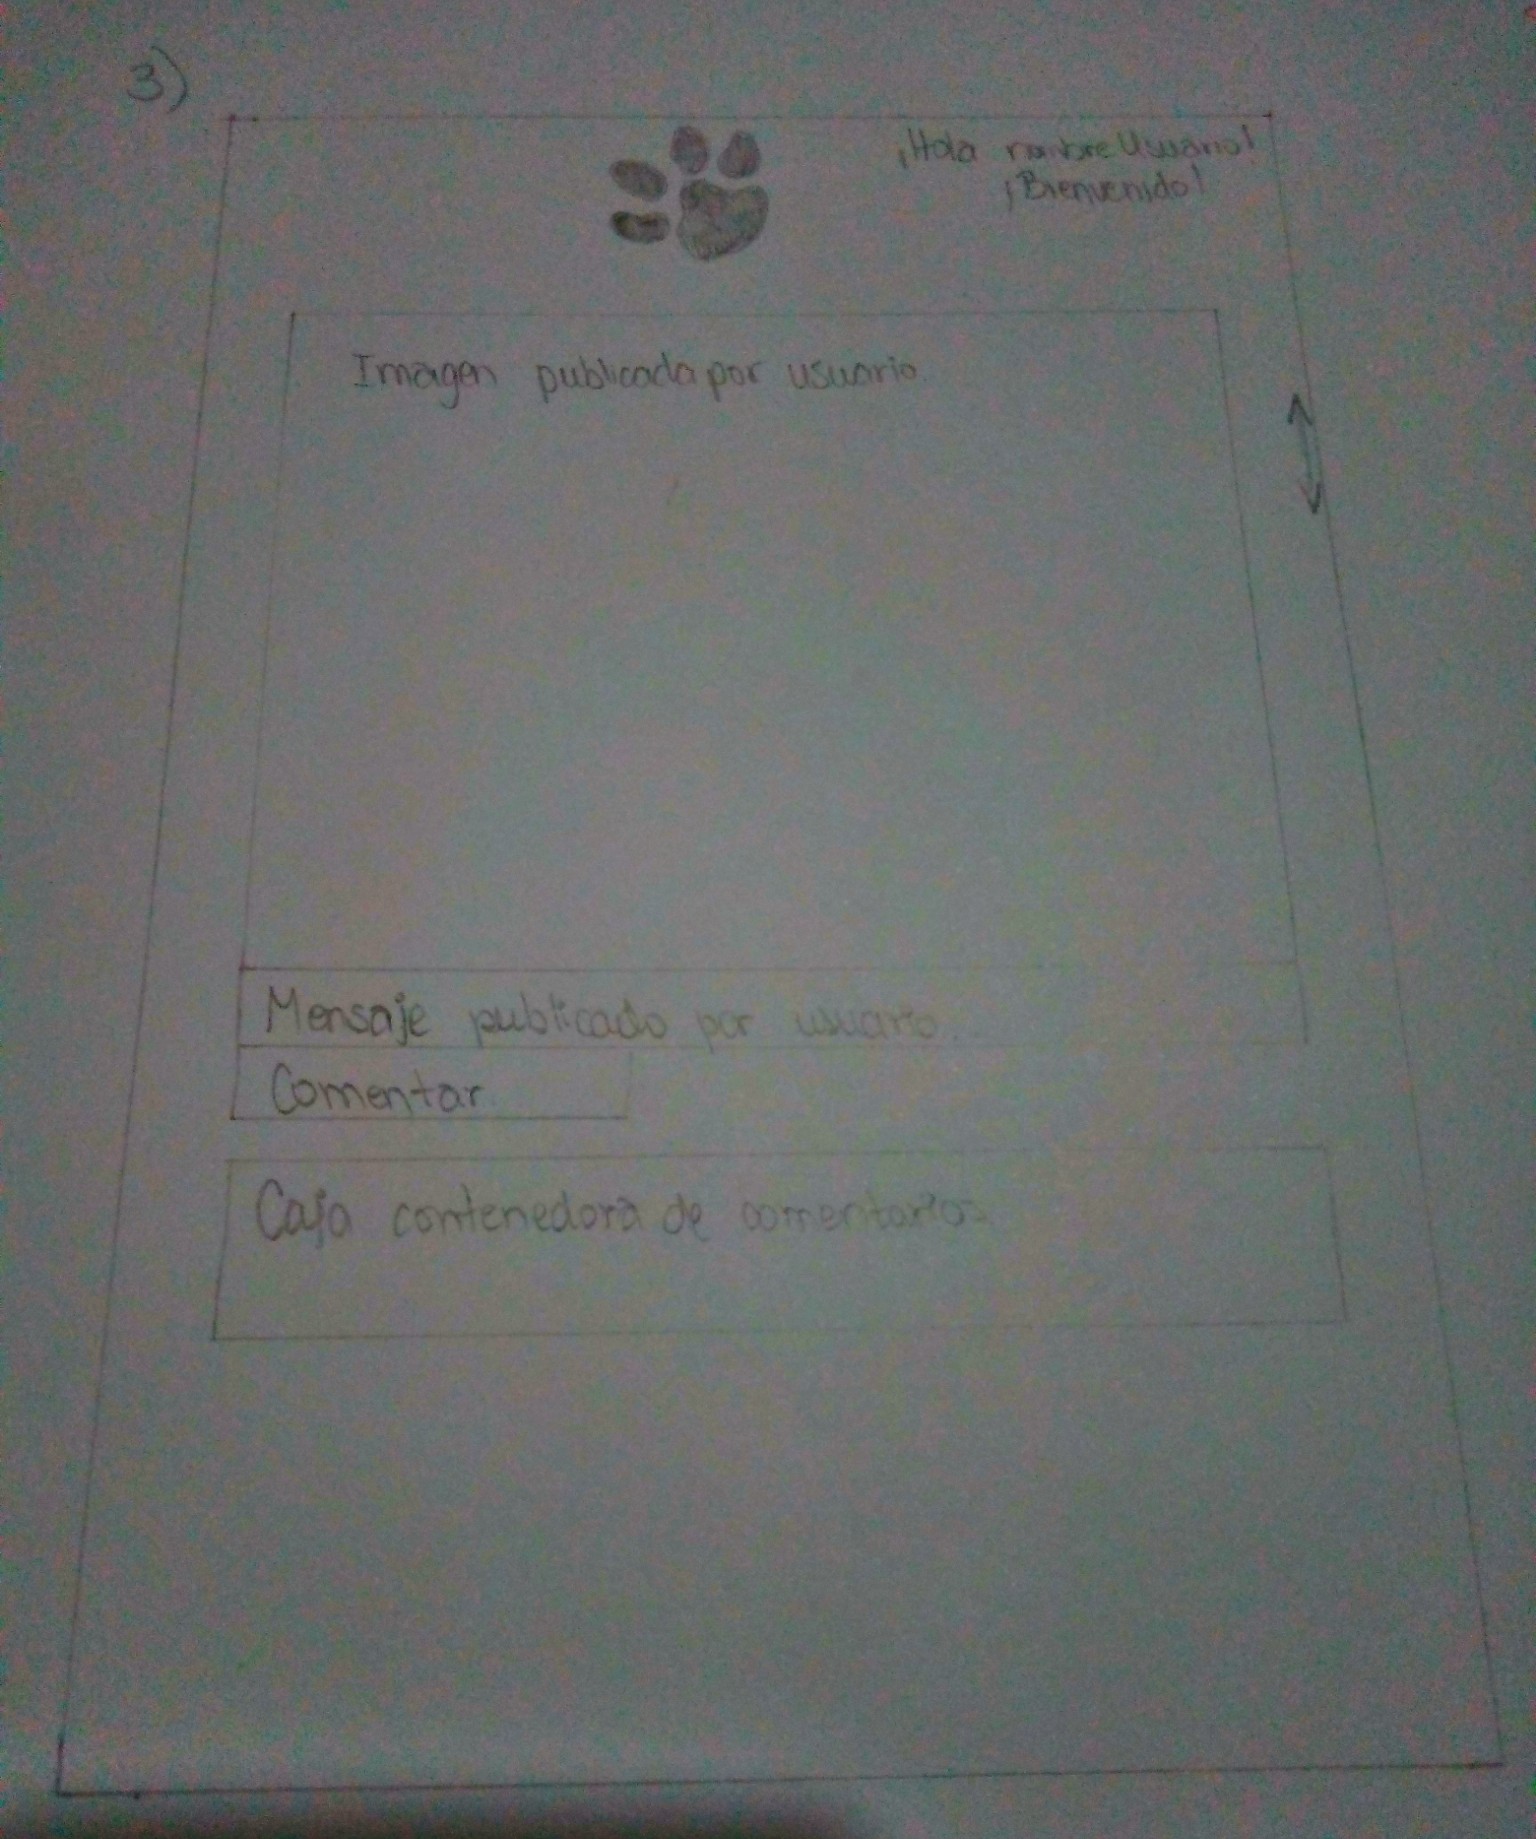 3)
¡Hola nombre Usuario!
¡Bienvenido!
Imagen publicada por usuario.
Mensaje publicado por usuario...
Comentar
Caja contenedora de comentarios.